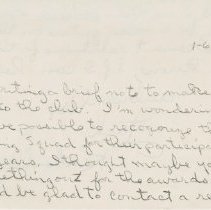 1-6
writing a brief note to make
to the club. I'm wondering
be possible to recognize th
ng Squad for their participa
years, I thought maybe yo
ething out for the awards
d be glad to contact a re